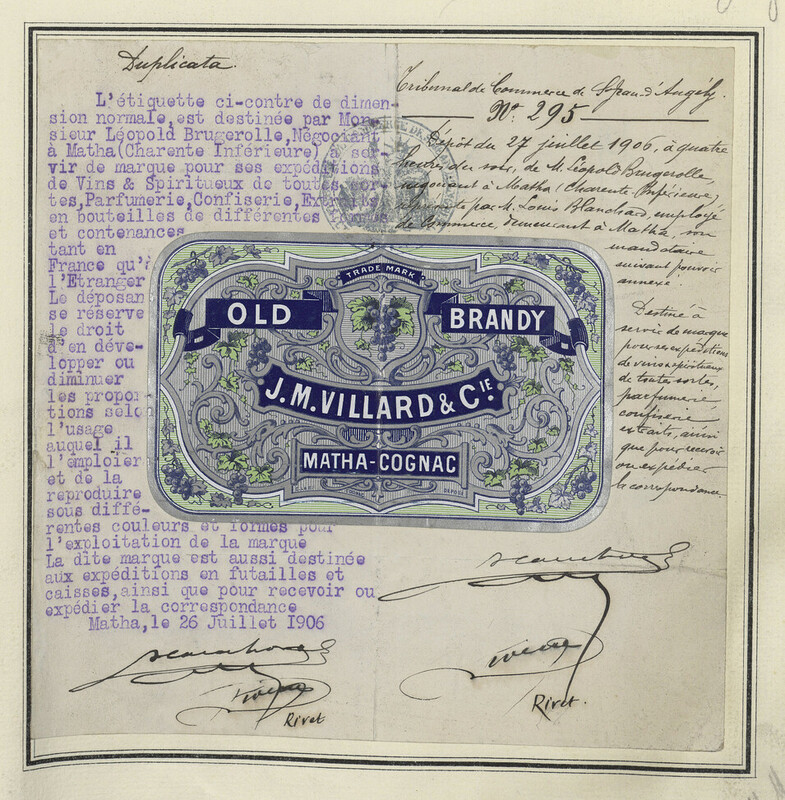 Duplicata.
L'étiquette ci-contre de dimen-
sion normale, est destinée par Mon-
sieur Léopold Brugerolle, Négociant
à Matha (Charente Inférieure) à ser-
vir de marque pour ses expéditions
de Vins & Spiritueux de toutes sor-
tes, Parfumerie, Confiserie, Extraits
en bouteilles de différentes
et contenances
tant en
France qu'à
l'Etranger
Le déposan
se réserve
le droit
d'en déve-
lopper ou
diminuer
les propor-
tions selo
l'usage
auquel il
l'emploier
et de la
reproduire
sous diffé-
rentes couleurs et formes pour
l'exploitation de la marque
La dite marque est aussi destinée
aux expéditions en futailles et
caisses, ainsi que pour recevoir ou
expédier la correspondance
Matha, le 26 Juillet 1906
Rivet
Tribunal de Commerce de St Jean-d'Angély.
No. 295
Dépôt du 27 juillet 1906, à quatre
heures du soir, de M. Léopold Brugerolle,
négociant à Matha (Charente Inférieure)
par M. Louis Blanchard, employé
de Commerce, demeurant à Matha, son
mandataire
suivant pouvoir
annexé.
Destiné à
servir de marque
pour ses expéditions
de vins & spiritueux
de toutes sortes,
parfumerie
confiserie
extraits, ainsi
que pour recevoir
ou expédier
la correspondance.
Rivet.
TRADE MARK
OLD BRANDY
J.M.VILLARD & CIE.
MATHA-COGNAC